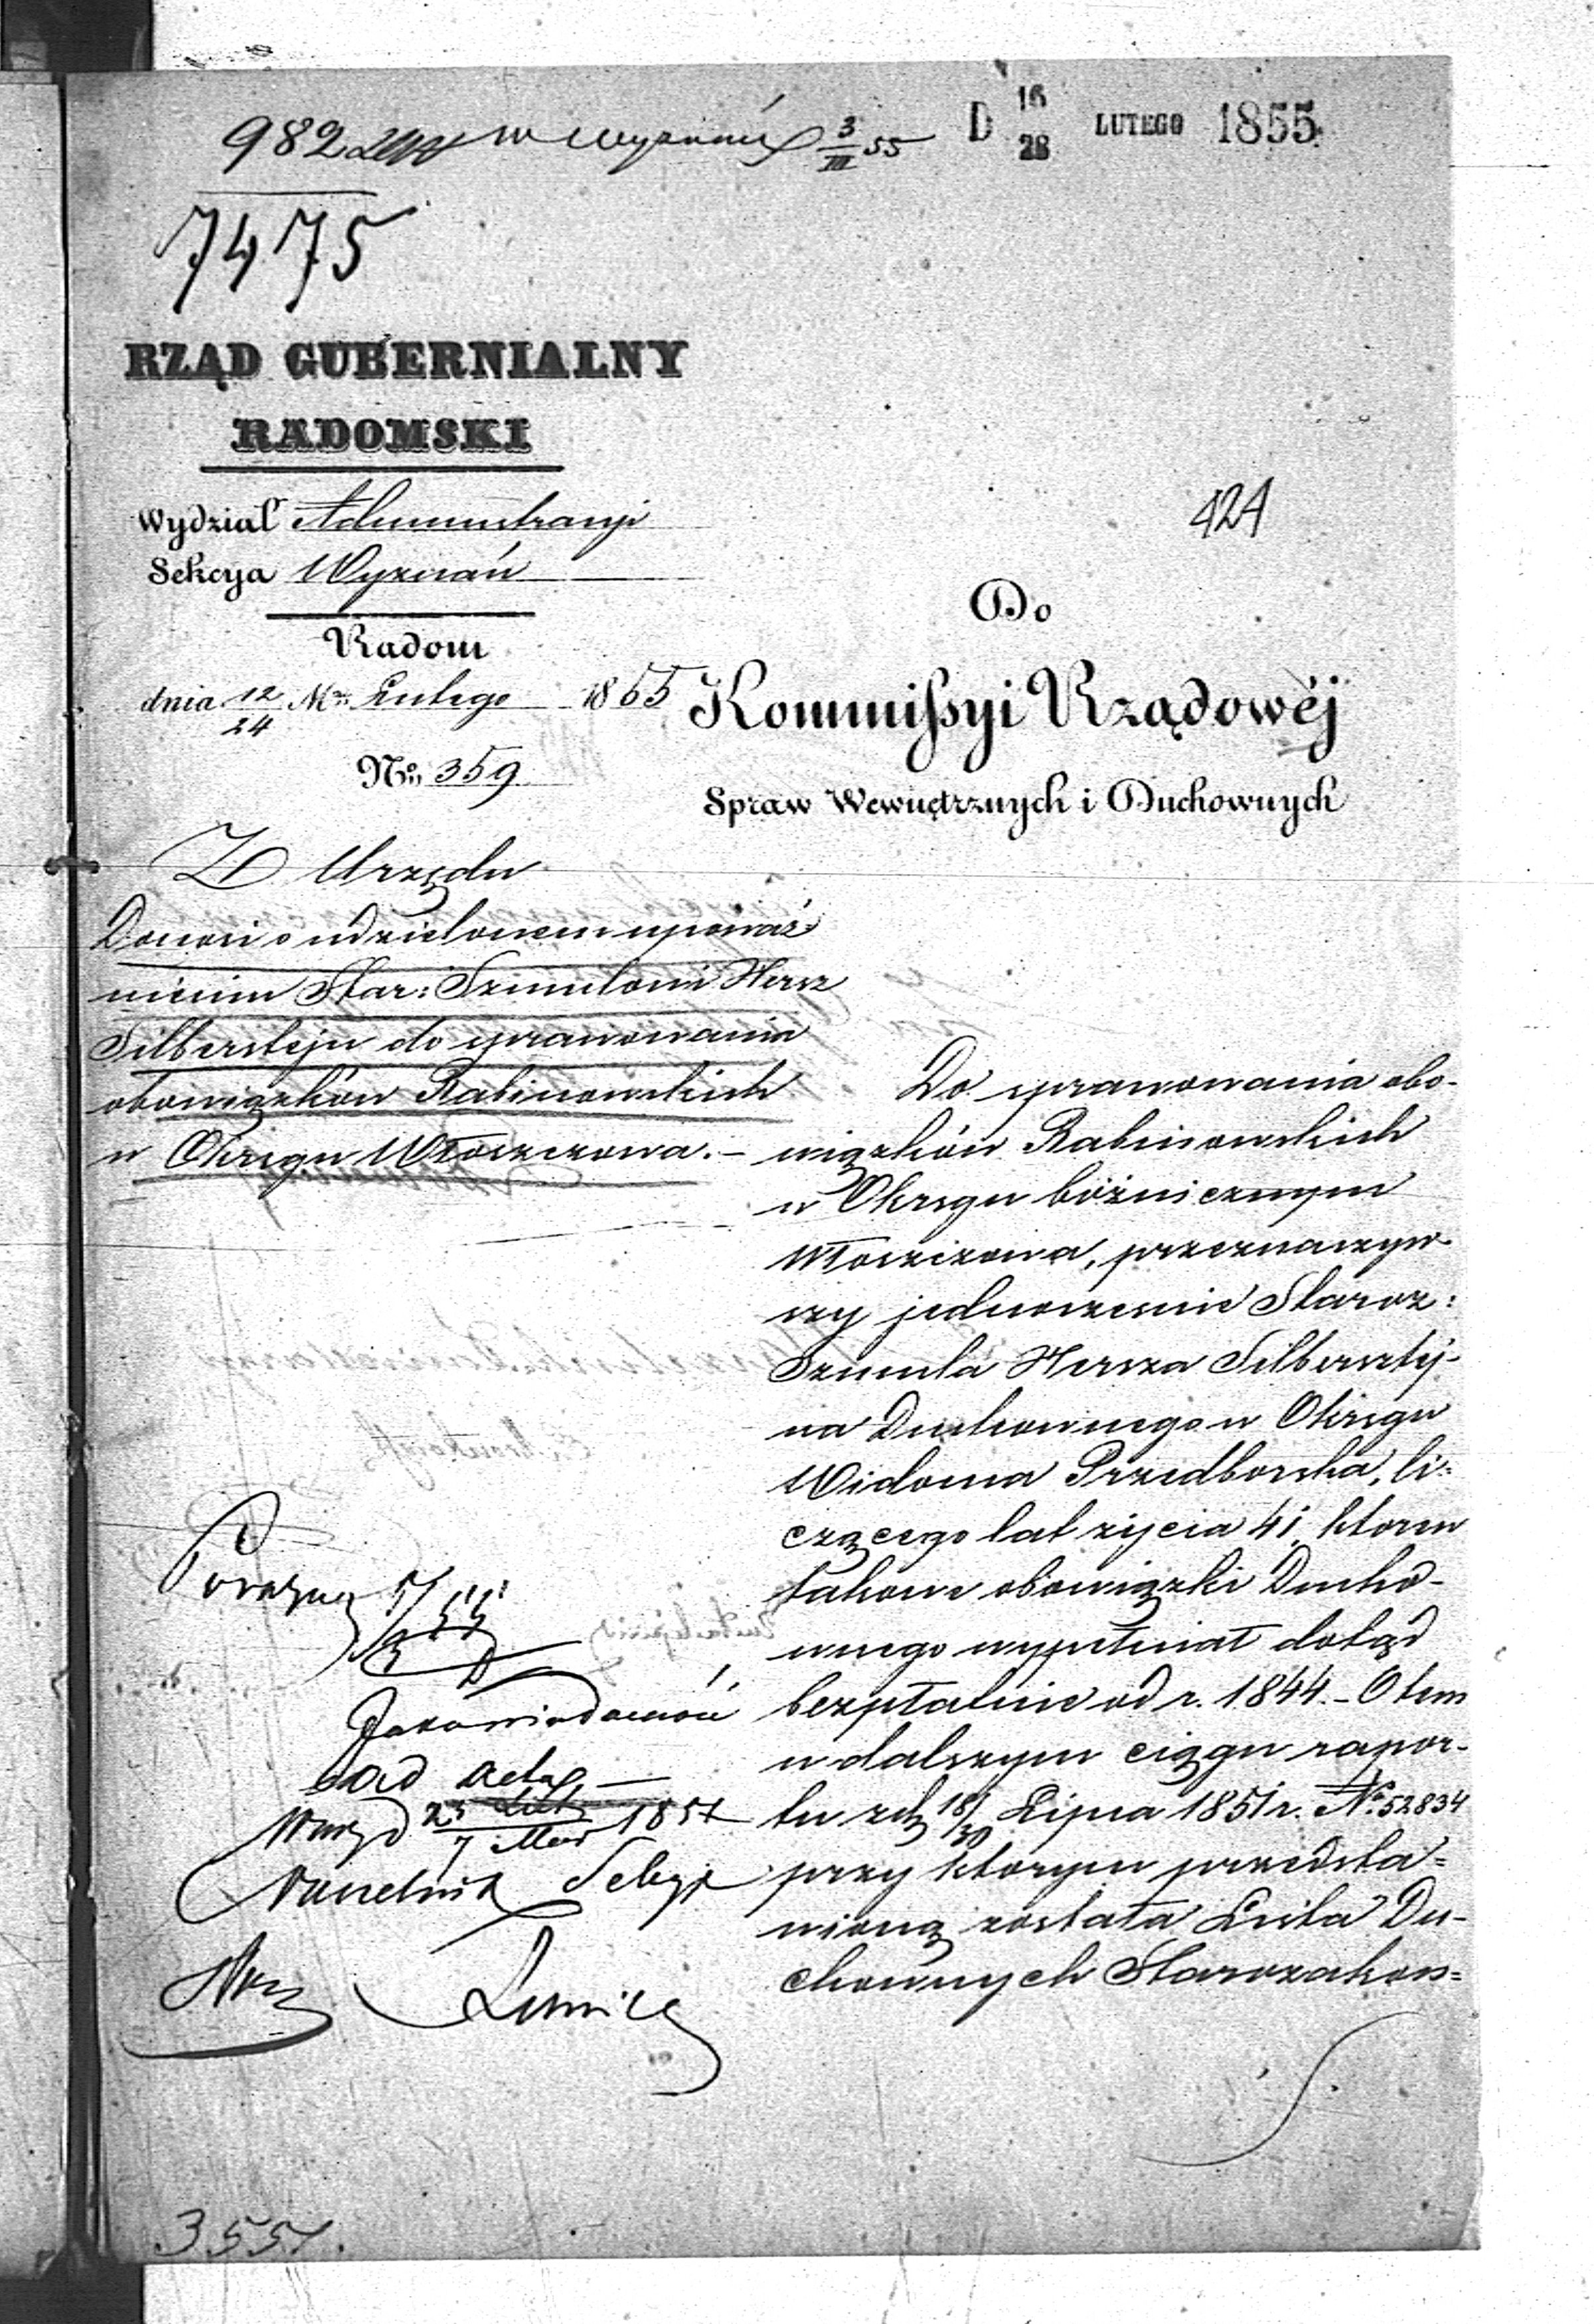 982 w Wyznań 3/III 55
D 16/28 LUTEGO 1855
7475
RZĄD GUBERNIALNY
RADOMSKI
Wydział Administracyi
Sekcya Wyznań
Radom
dnia 12/24 Mca Lutego 1855
No 359
424
Do
Kommissyi Rządowéj
Spraw Wewnętrznych i Duchownych
Z Urzędu
Donosi o udzielonem upoważ-
nieniu Star: Szmulowi Hersz
Silbersztejn do sprawowania
obowiązków Rabinowskich
w Okręgu Włoszczowa.–
Do sprawowania obo-
wiązków Rabinowskich
w Okręgu bóżnicznym
Włoszczowa, przeznaczyw-
szy jednocześnie Staroz:
Szmula Hersza Silbersztej-
na Duchownego w Okręgu
Widoma Przedborska, li-
czącego lat życia 41, który
takowe obowiązki Ducho-
wnego wypełniał dotąd
bezpłatnie od r. 1844.– O tem
w dalszym ciągu rapor-
tu z d. 18/30 Lipca 1851 r. No 52834
przy którym przedsta-
wioną została Lista Du-
chownych Starozakon-
Do wiadomości
ad acta
7 Mar
Naczelnik Sekcyi
3551.